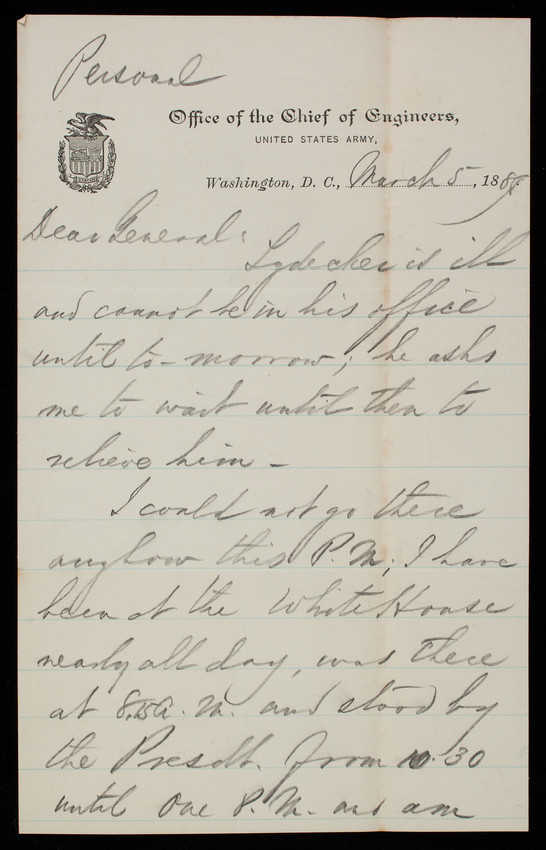 Personal
Office of the Chief of Engineers,
UNITED STATES ARMY,
Washington, D. C., March 5, 1889
Dear General:
Lydecker is ill
and cannot be in his office
until to-morrow; he asks
me to wait until then to
relieve him -
I could not go there
anyhow this P.M; I have
been at the White House
nearly all day, was there
at 8.15 A. M. and stood by
the Presdt. from 10.30
until One P. M. and am